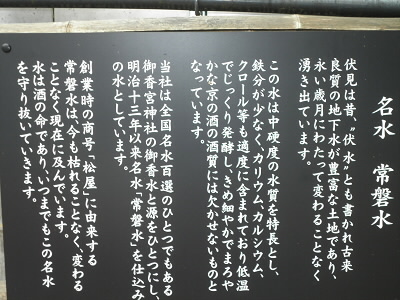 名水　常磐水
伏見は昔、“伏水”とも書かれ古来
良質の地下水が豊富な土地であり、
永い歳月にわたって変わることなく
湧き出ています。
この水は中硬度の水質を特長とし、
鉄分が少なく、カリウム、カルシウム、
クロール等も適度に含まれており低温
でじっくり発酵し、きめ細やかでまろや
かな京の酒の酒質には欠かせないものと
なっています。
当社は全国名水百選のひとつでもある
御香宮神社の御香水と源をひとつにし、
明治十三年以来名水「常磐水」を仕込み
の水としています。
創業時の商号「松屋」に由来する
常磐水は、今も枯れることなく、変わる
ことなく現在に及んでいます。
水は酒の命であり、いつまでもこの名水
を守り抜いていきます。